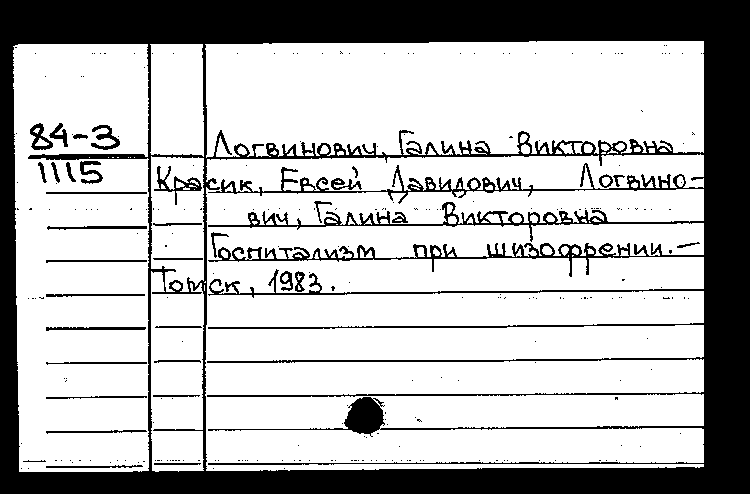 84-3
1115
Логвинович, Галина Викторовна
Красик, Евсей Давидович, Логвино-
вич, Галина Викторовна
Госпитализм при шизофрении.—
Томск, 1983.